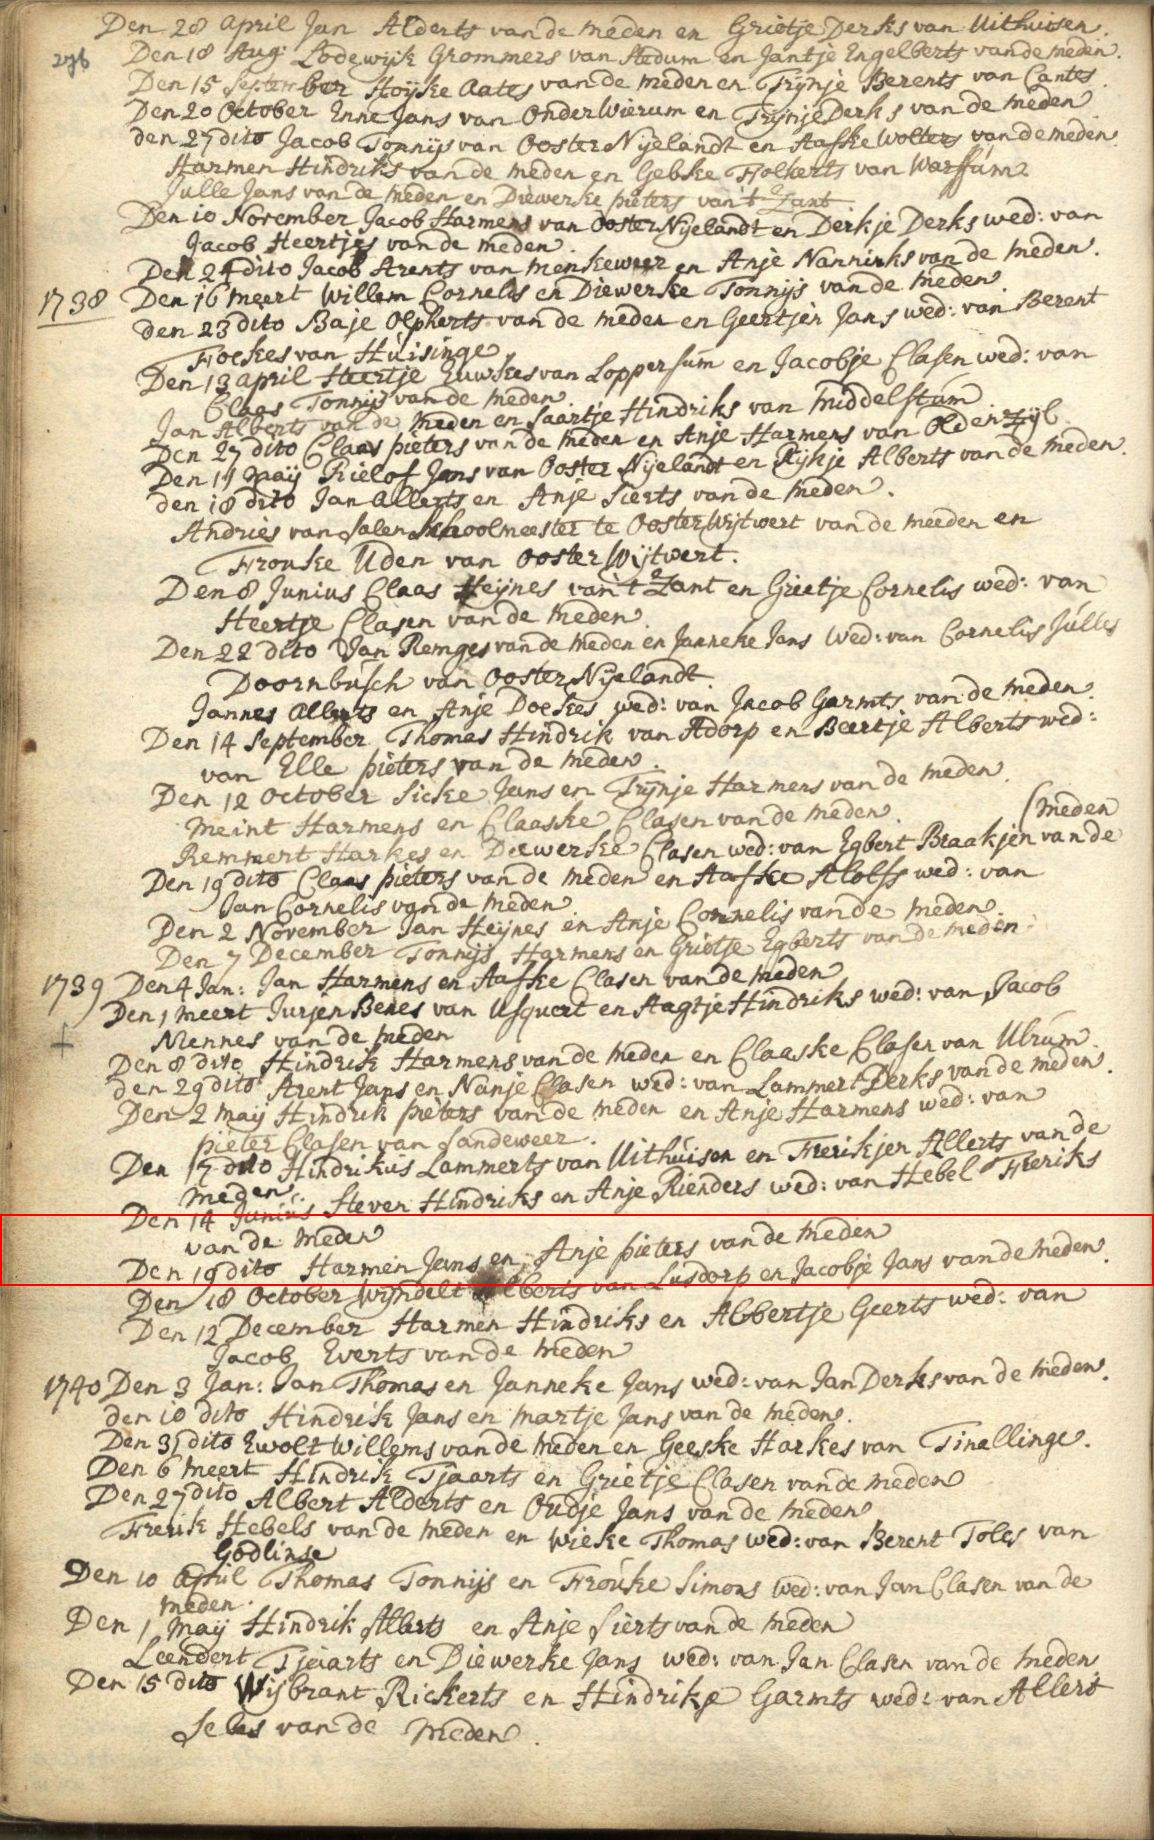 276
Den 28 April Jan Alderts van de meden en Grietje Derks van Uithuisen.
Den 18 Aug: Lodewijk Grommers van Stedum en Jantje Engelberts van de meden.
Den 15 September Hoijke Aates van de meden en Trijntje Berents van Cantes.
Den 20 October Enne Jans van Onder Wierum en Trijnje Derks van de meden
den 27 dito Jacob Tonnijs van Ooster Nijelandt en Aafke Wolters van de meden.
Harmen Hindriks van de meden en Gebke Folkerts van Warffum.
Julle Jans van de meden en Diewerke pieters van 't Zant
Den 10 November Jacob Harmens van Ooster Nijelandt en Derkje Derks wed: van
Jacob Heertjes van de meden.
Den 24 dito Jacob Arents van Menkeweer en Anje Nanninks van de meden.
1738 Den 16 meert Willem Cornelis en Diewerke Tonnijs van de meden.
den 23 dito Baje Olpherts van de meden en Geertjen Jans wed: van Berent
Foekes van Huisinge
Den 13 april Heertje Euwkes van Loppersum en Jacobje Clasen wed: van
Claas Tonnijs van de meden.
Jan Alberts van de meden en Saartje Hindriks van middelstum
Den 27 dito Claas pieters van de meden en Anje Harmens van Olden Zijl
Den 11 Maij Rielof Jans van Ooster Nijelandt en Rijkje Alberts van de meden.
den 18 dito Jan Allerts en Anje Sierts van de meden.
Andries van Salen Schoolmeester te Ooster Wijtwert van de meeden en
Frouke Uden van Ooster Wijtwert.
Den 8 Junius Claas Heijnes van 't Zant en Grietje Cornelis wed: van
Heertje Clasen van de meden.
Den 22 dito Jan Remges van de meden en Janneke Jans wed: van Cornelis Julles
Doornbusch van Ooster Nijelandt.
Jannes Alberts en Anje Doekes wed: van Jacob Garmts van de meden.
Den 14 September Thomas Hindrik van Adorp en Beertje Alberts wed:
van Elle pieters van de meden.
Den 12 October Sicke Jans en Trijnje Harmens van de meden.
Meint Harmens en Claaske Clasen van de meden. (meden
Remmert Harkes en Diewerke Clasen wed: van Egbert Braakjen van de
Den 19 dito Claas pieters van de meden en Aafke Alofs wed: van
Jan Cornelis van de meden
Den 2 November Jan Heijnes en Anje Cornelis van de meden
Den 7 December Tonnijs Harmens en Grietje Egberts van de meden.
1739 Den 4 Jan: Jan Harmens en Aafke Clasen van de meden
Den 1 meert Jurjen Benes van Usquert en Aagtje Hindriks wed: van Jacob
Mennes van de meden
Den 8 dito Hindrik Harmens van de meden en Claaske Clasen van Ulrum.
den 29 dito Arent Jans en Nanje Clasen wed: van Lammert Derks van de meden.
Den 2 maij Hindrik pieters van de meden en Anje Harmens wed: van
pieter Clasen van Sandeweer.
Den 17 dito Hindrikus Lammerts van Uithuisen en Frerikjen Allerts van de
meden.
Den 14 Junius Steven Hindriks en Anje Rienders wed: van Hebel Freriks
van de meden
Den 19 dito Harmen Jans en Anje pieters van de meden
Den 18 October Wijndelt Alberts van Lusdorp en Jacobje Jans van de meden.
Den 12 December Harmen Hindriks en Albertje Geerts wed: van
Jacob Everts van de meden
1740 Den 3 Jan: Jan Thomas en Janneke Jans wed: van Jan Derks van de meden.
den 10 dito Hindrik Jans en Martje Jans van de meden.
Den 31 dito Ewolt Willems van de meden en Geeske Harkes van Tinallinge.
Den 6 meert Hindrik Tjaarts en Grietje Clasen van de meden
Den 27 dito Albert Alderts en Oudje Jans van de meden
Frerik Hebels van de meden en Wieke Thomas wed: van Berent Toles van
Godlinse
Den 10 april Thomas Tonnijs en Frouke Simons wed: van Jan Clasen van de
meden.
Den 1 Maij Hindrik Alberts en Anje Sierts van de meden
Leendert Tjaarts en Diewerke Jans wed: van Jan Clasen van de meden
Den 15 dito Wijbrant Rickerts en Hindrikje Garmts wed: van Allert
Seles van de meden.